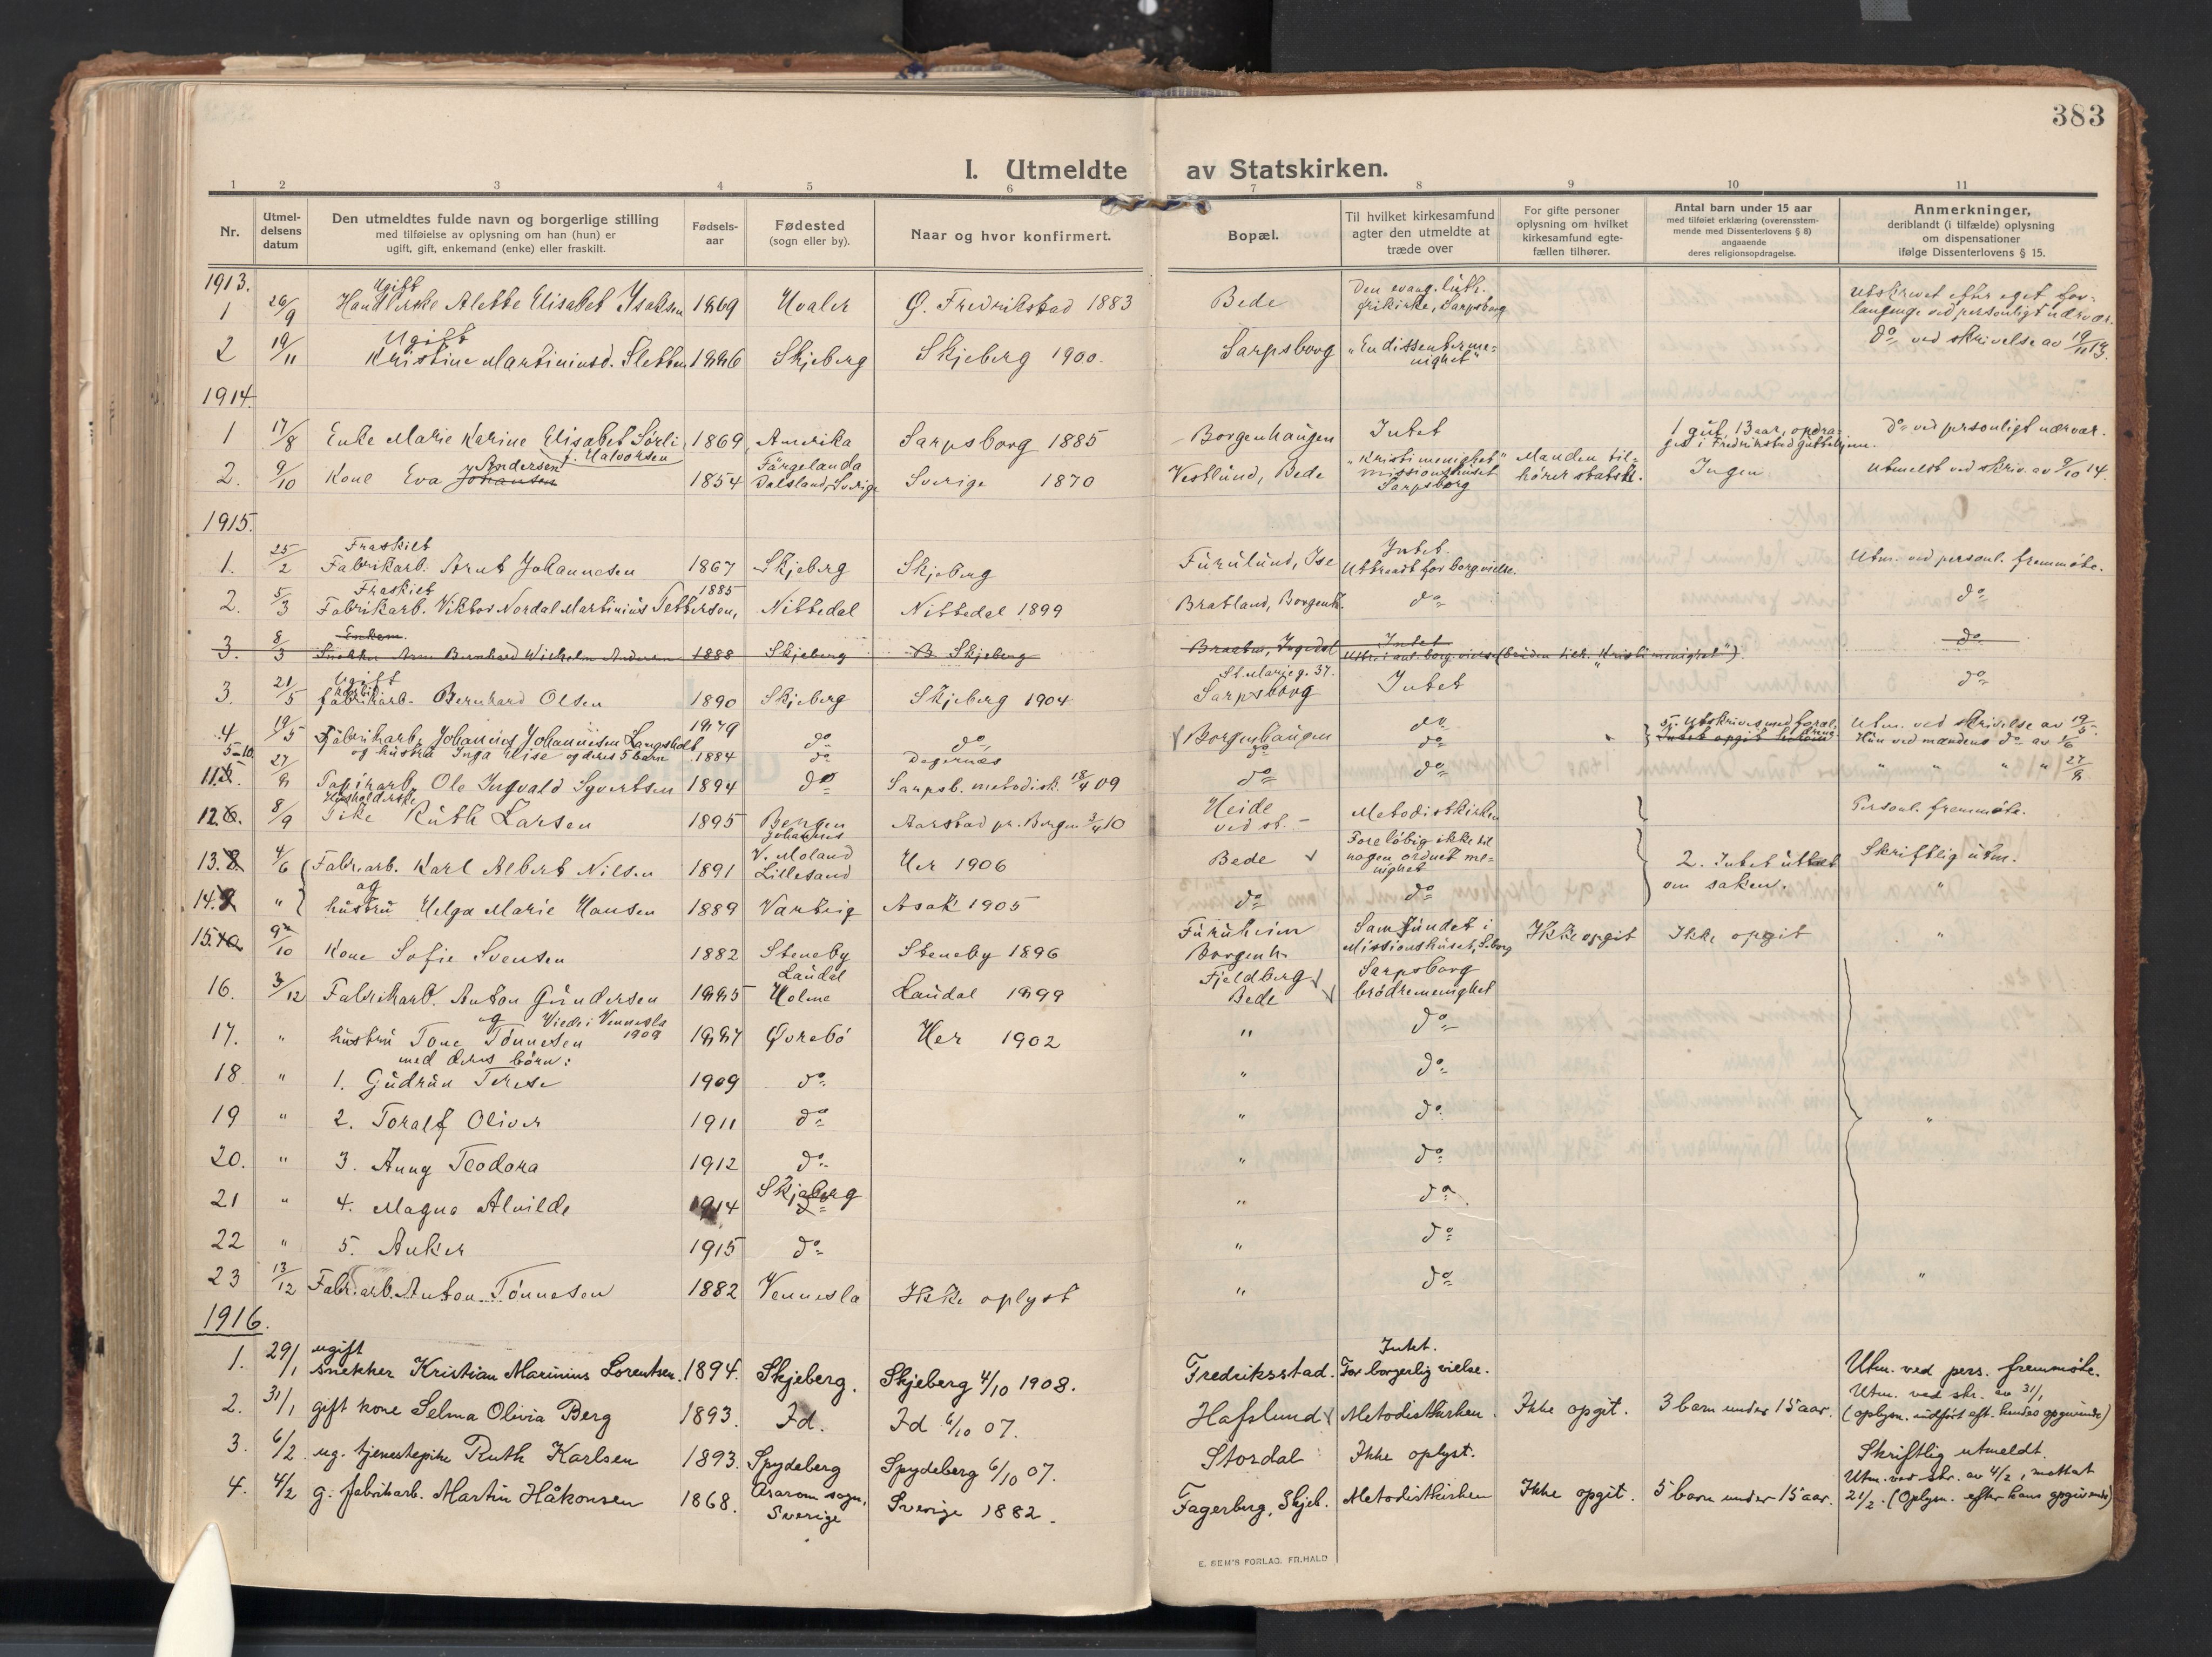 383
I. Utmeldte av Statskirken.
1 2 3 4 5 6 7 8 9 10 11
Nr. | Utmel-delsens datum | Den utmeldtes fulde navn og borgerlige stilling med tilføielse av oplysning om han (hun) er ugift, gift, enkemand (enke) eller fraskilt. | Fødsels-aar | Fødested (sogn eller by). | Naar og hvor konfirmert. | Bopæl. | Til hvilket kirkesamfund agter den utmeldte at træde over | For gifte personer oplysning om hvilket kirkesamfund egte-fællen tilhører. | Antal barn under 15 aar med tilføiet erklæring (overensstem-mende med Dissenterlovens § 8) angaaende deres religionsopdragelse. | Anmerkninger, deriblandt (i tilfælde) oplysning om dispensationer ifølge Dissenterlovens § 15.
1913.
1 | 26/9 | Ugift Handlerske Alette Elisabet Ysaksen | 1869 | Hvaler | G. Fredrikstad 1883 | Bede | Den evang. luth. frikirke, Sarpsborg | Utskrevet efter eget for-langende ved personligt nærvær.
2 | 19/11 | Ugift Kristine Martiniusd. Sletten | 1886 | Skjeberg | Skjeberg 1900. | Sarpsborg | "En dissenterme-nighet" | do ved skrivelse av 19/11 13.
1914.
1 | 17/8 | Enke Marie Karine Elisabet Sørli f. Halvorsen | 1869 | Amerika | Sarpsborg 1885 | Borgenhaugen | Intet | 1 gut, 13 aar, opdra-ges i Fredrikstad guttehjem. | do ved personligt nærvær.
2. | 9/10 | Kone Eva Johansen Andersen | 1854 | Färgelanda Dalsland, Sverige | Sverige 1870 | Vestlund, Bede | "Kristi menighet" missionshuset Sarpsborg | Manden til-hører statsk. | Ingen | Utmeldt ved skriv. av 9/10 14.
1915.
1. | 25/2 | Fraskilt Fabrikarb. Arnt Johannesen | 1867 | Skjeberg | Skjeberg | Furulund, Ise | Intet. Uttraadt for borg. vielse. | Utm. ved personl. fremmøte.
2. | 5/3 | Fraskilt Fabrikarb. Viktor Nordal Martinius Pettersen, | 1885 | Nittedal | Nittedal 1899 | Bratland, Borgenh. | do | do
3. | 8/3 | Enkem. Snekker Bernhard Wilhelm Andersen | 1888 | Skjeberg | Skjeberg | Intet Uttr. i anl. borg. vielse (bruden tilh. "Kristi menighet") | do
3. | 21/5 | Ugift fabrikarb. Bernhard Olsen | 1890 | Skjeberg | Skjeberg 1904 | St. Marieg. 37. Sarpsborg | Intet | do
4 | 19/5 | Fabrikarb. Johannes Johannesen Langsholt | 1879 | do | do | Borgenhaugen | do | Utm. ved skrivelse av 19/5
5-10. | og hustru Inga Elise og deres 5 barn | 1884 | do | Degernes | do | do | Hun ved mandens do av 1/6
11. | 27/8 | Papirarb. Ole Ingvald Syvertsen | 1894 | do | Sarpsb. metodisk. 18/4 09 | do | do | " " " " 27/8
12. | 8/9 | Husholderske Pike Ruth Larsen | 1895 | Bergen Johannes | Aarstad pr. Bergen 3/4 10 | Heide ved st. | Metodistkirken | Personl. fremmøte.
13. | 4/6 | Fabr.arb. Karl Albert Nilsen | 1891 | V. Moland Lillesand | Her 1906 | Bede | Foreløbig ikke til nogen ordnet me-nighet | 2. Intet uttalt om saken. | Skriftlig utm.
14. | " | og hustru Helga Marie Hansen | 1889 | Varteig | Asak 1905 | do | do | "
15. | 9/10 | Kone Sofie Svensen | 1882 | Steneby | Steneby 1896 | Furuheim Borgenh. | Samfundet i Missionshuset, S.borg | Ikke opgit | Ikke opgit | "
16. | 3/12 | Fabrikarb. Anton Gundersen | 1885 | Laudal Holme | Laudal 1899 | Fjeldberg Bede | Sarpsborg brødremenighet
17. | " | og hustru Tone Tønnesen Viede i Vennesla 1909 | 1887 | Øvrebø | Her 1902 | " | do
med deres børn:
18 | " | 1. Gudrun Terese | 1909 | do | " | do
19 | " | 2. Toralf Oliver | 1911 | do | " | do | "
20. | " | 3. Anny Teodora | 1912 | do | " | do
21 | " | 4. Magna Alvilde | 1914 | Skjeberg | " | do
22 | " | 5. Anker | 1915 | do | " | do
23 | 13/12 | Fabr.arb. Anton Tønnesen | 1882 | Vennesla | Ikke oplyst | " | do | "
1916.
1. | 29/1 | ugift snekker Kristian Marinius Lorentsen. | 1894. | Skjeberg. | Skjeberg 4/10 1908. | Fredriksstad. | Intet. For borgerlig vielse. | Utm. ved pers. fremmøte.
2. | 31/1 | gift kone Selma Olivia Berg | 1893. | Id. | Id 6/10 07. | Hafslund | Metodistkirken. | Ikke opgit. | 3 barn under 15 aar. | Utm. ved skr. av 31/1 (oplysn. indført eft. hendes opgivende)
3. | 6/2 | ug. tjenestepike Ruth Karlsen | 1893. | Spydeberg | Spydeberg 6/10 07. | Stordal | Ikke oplyst. | Skriftlig utmeldt.
4. | 4/2 | g. fabrikarb. Martin Håkonsen | 1868. | sogn, Sverige | Sverige 1882. | Fagerberg, Skjeb. | Metodistkirken | Ikke opgit. | 5 barn under 15 aar. | Utm. ved skr. av 4/2, mottat 21/2. (Oplysn. efter hans opgivende)
E. SEM'S FORLAG. FR.HALD